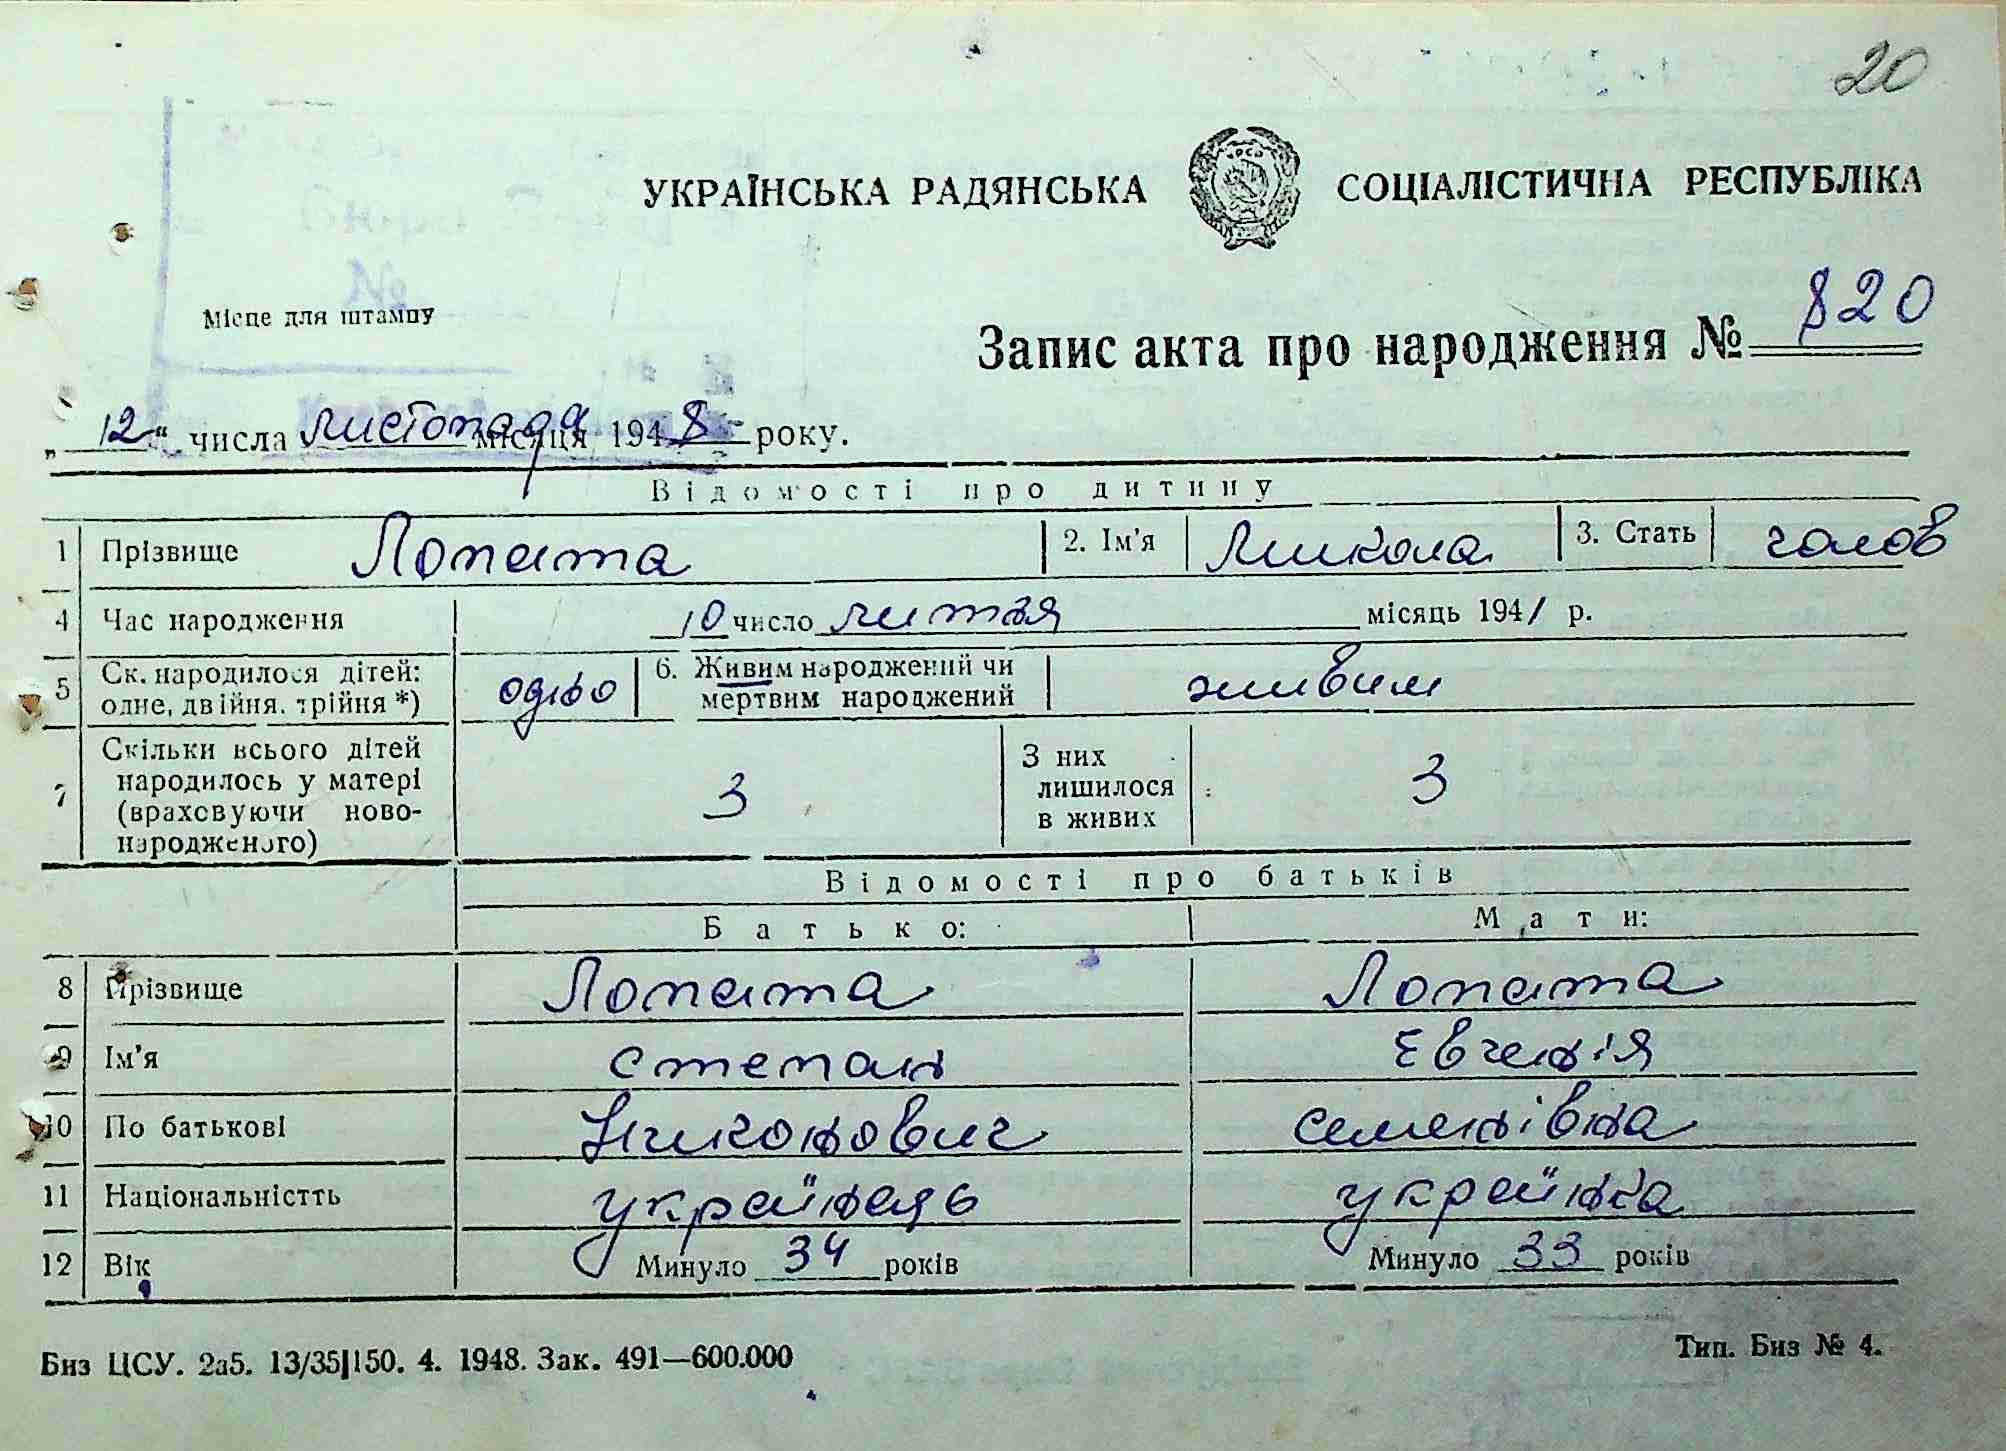 20
УКРАЇНСЬКА РАДЯНСЬКА СОЦІАЛІСТИЧНА РЕСПУБЛІКА
Місце для штампу
№
Запис акта про народження № 820
„12“ числа листопада місяця 1948 року.
Відомості про дитину
1 Прізвище Лопата 2. Ім'я Микола 3. Стать чолов
4 Час народження 10 число лютня місяць 1941 р.
5 Ск. народилося дітей: одне, двійня, трійня *) одно 6. Живим народжений чи мертвим народжений живим
7 Скільки всього дітей народилось у матері (враховуючи ново-народженого) 3 З них лишилося в живих 3
Відомості про батьків
Батько: Мати:
8 Прізвище Лопата Лопата
9 Ім'я степан Евгенія
10 По батькові Никонович семенівна
11 Національністть украйнець украйнка
12 Вік Минуло 34 років Минуло 33 років
Биз ЦСУ. 2а5. 13/35|150. 4. 1948. Зак. 491—600.000 Тип. Биз № 4.